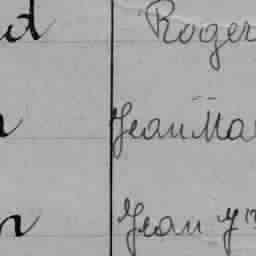 d Roger
Jean Ma
n Jean y